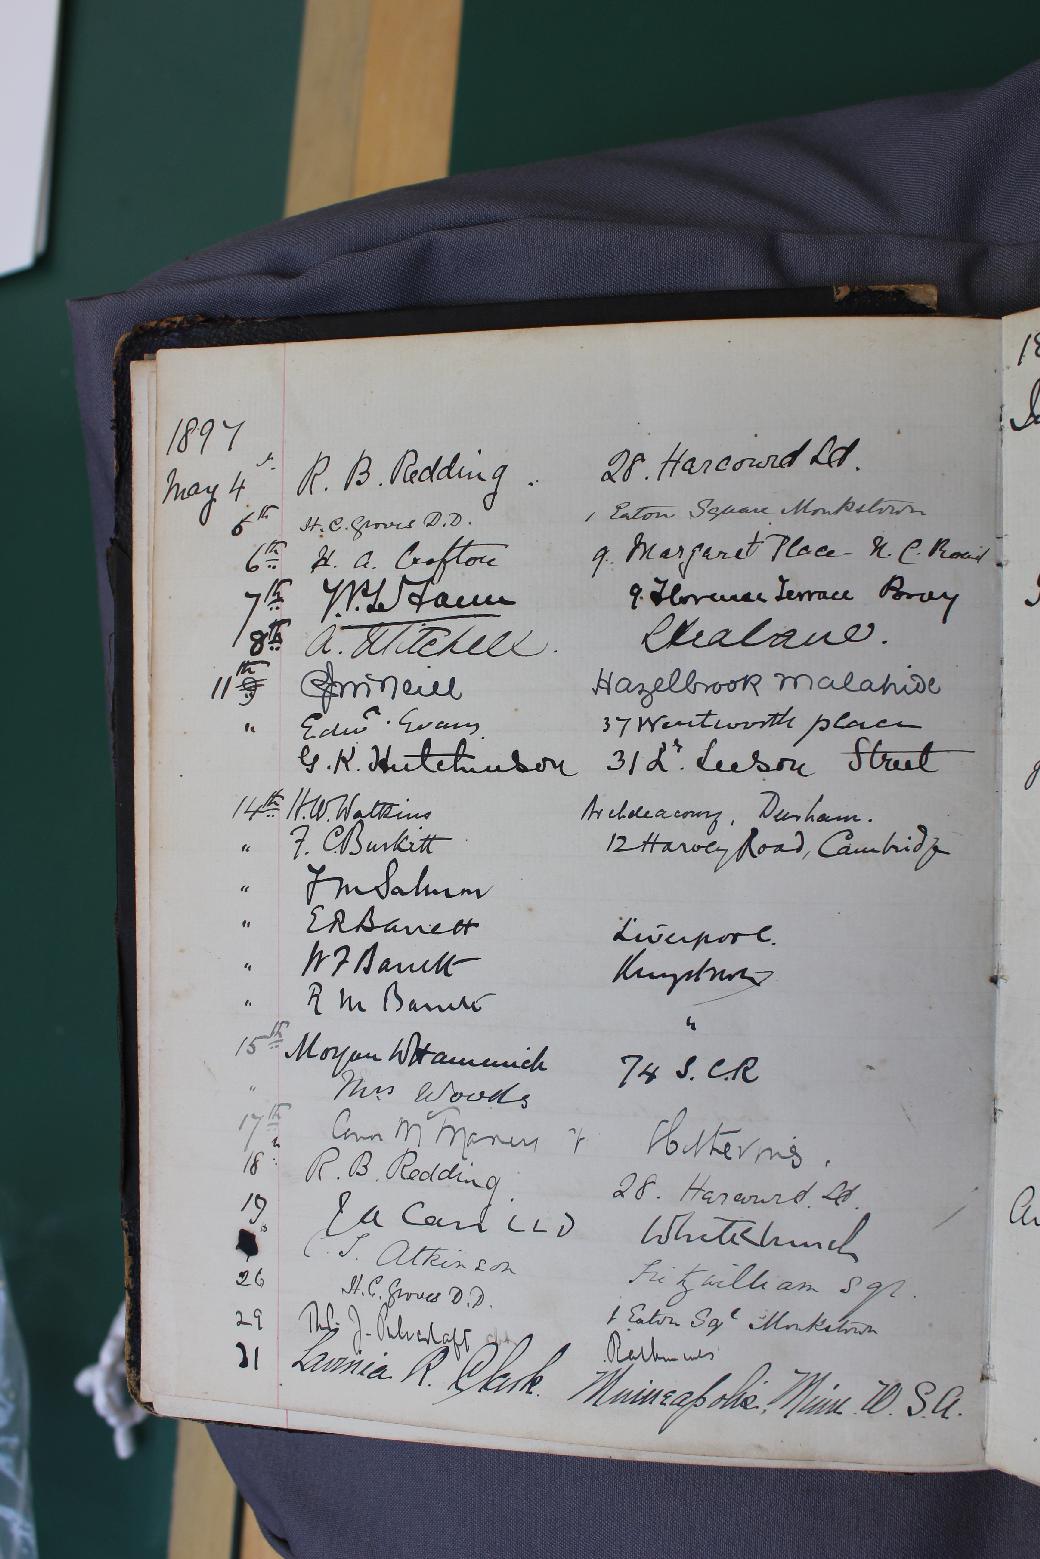 1897
May 4 R. B. Redding. 28. Harcourd Ld.
5th H. C. Groves D.D. 1 Eaton Square Monkstown
6th H. A. Crofton 9. Margaret Place - N. C. Road
7th 9 Florence Terrace Bray
8th A. Mitchell. Skealane.
11th Hazelbrook Malahide
" Edwd. Evans. 37 Wentworth place
G. K. Hutchinson 31 Lr. Leeson Street
14th H. W. Watkins Archdeaconry, Durham.
" F. C Burkitt 12 Harvey Road, Cambridge
" F M Salmon
" E R Barrett Liverpool.
" W F Barrett Kingstown
" R M Barrett "
15th Morgan W 74 S. C. R
" Mrs Woods
17th
18 R. B. Redding. 28. Harcourd. Ld.
19. J A Carr LLD Whitechurch
Atkinson Fitzwilliam Sqr.
26 H. C. Groves D. D. 1 Eaton Sqe Monkstown
29 Thos J. Pulvertaft Rathmines
31 Lavinia R. Clark. Minneapolis, Minn. U. S. A.